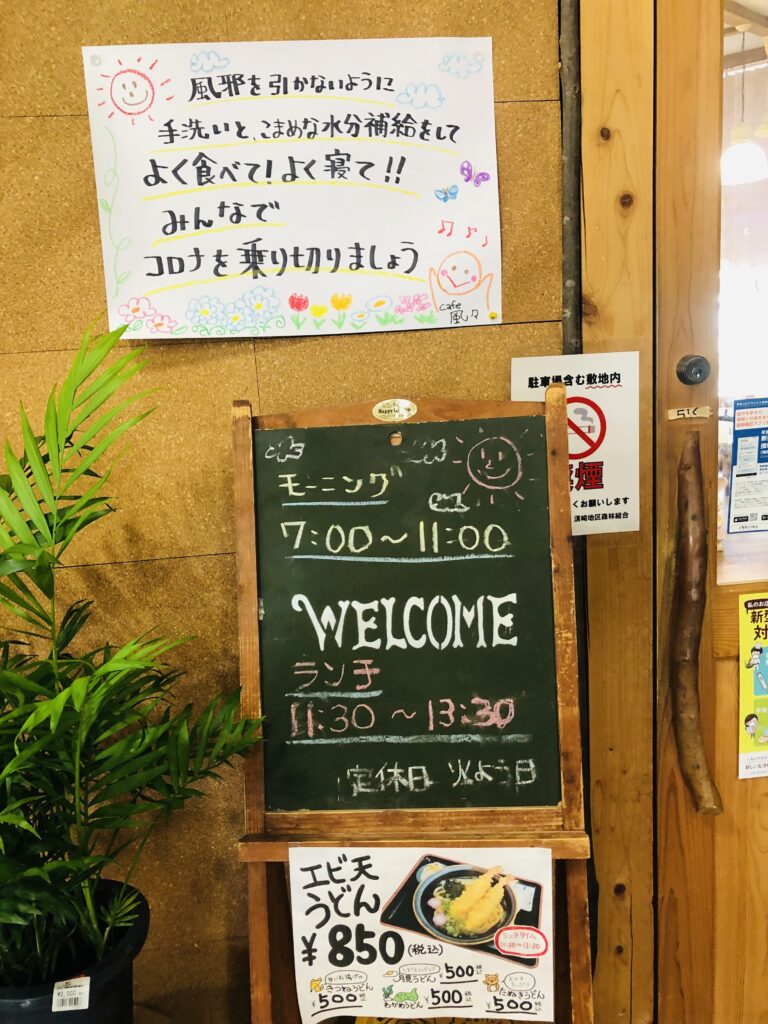 風邪を引かないように
手洗いと、こまめな水分補給をして
よく食べて!よく寝て!!
みんなで
コロナを乗り切りましょう
cafe
風々
駐車場含む敷地内
煙
くお願いします
森林組合
引く
モーニング
7:00～11:00
WELCOME
ランチ
11:30～13:30
定休日 火よう日
エビ天
うどん
¥850(税込)
ランチタイム
11:30~13:30
きつねうどん
¥500税込
月見うどん
¥500税込
わかめうどん
¥500税込
たぬきうどん
¥500税込
¥2,500
私のお店
新型
対